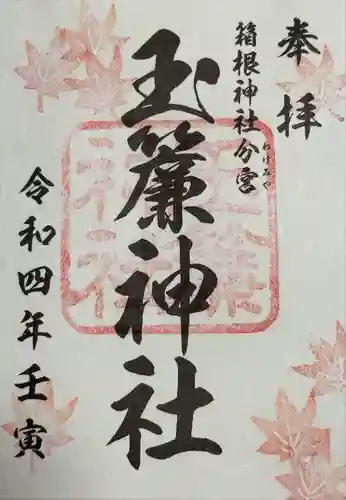 奉拝
箱根神社分宮
わけみや
玉簾神社
令和四年壬寅
玉簾神社